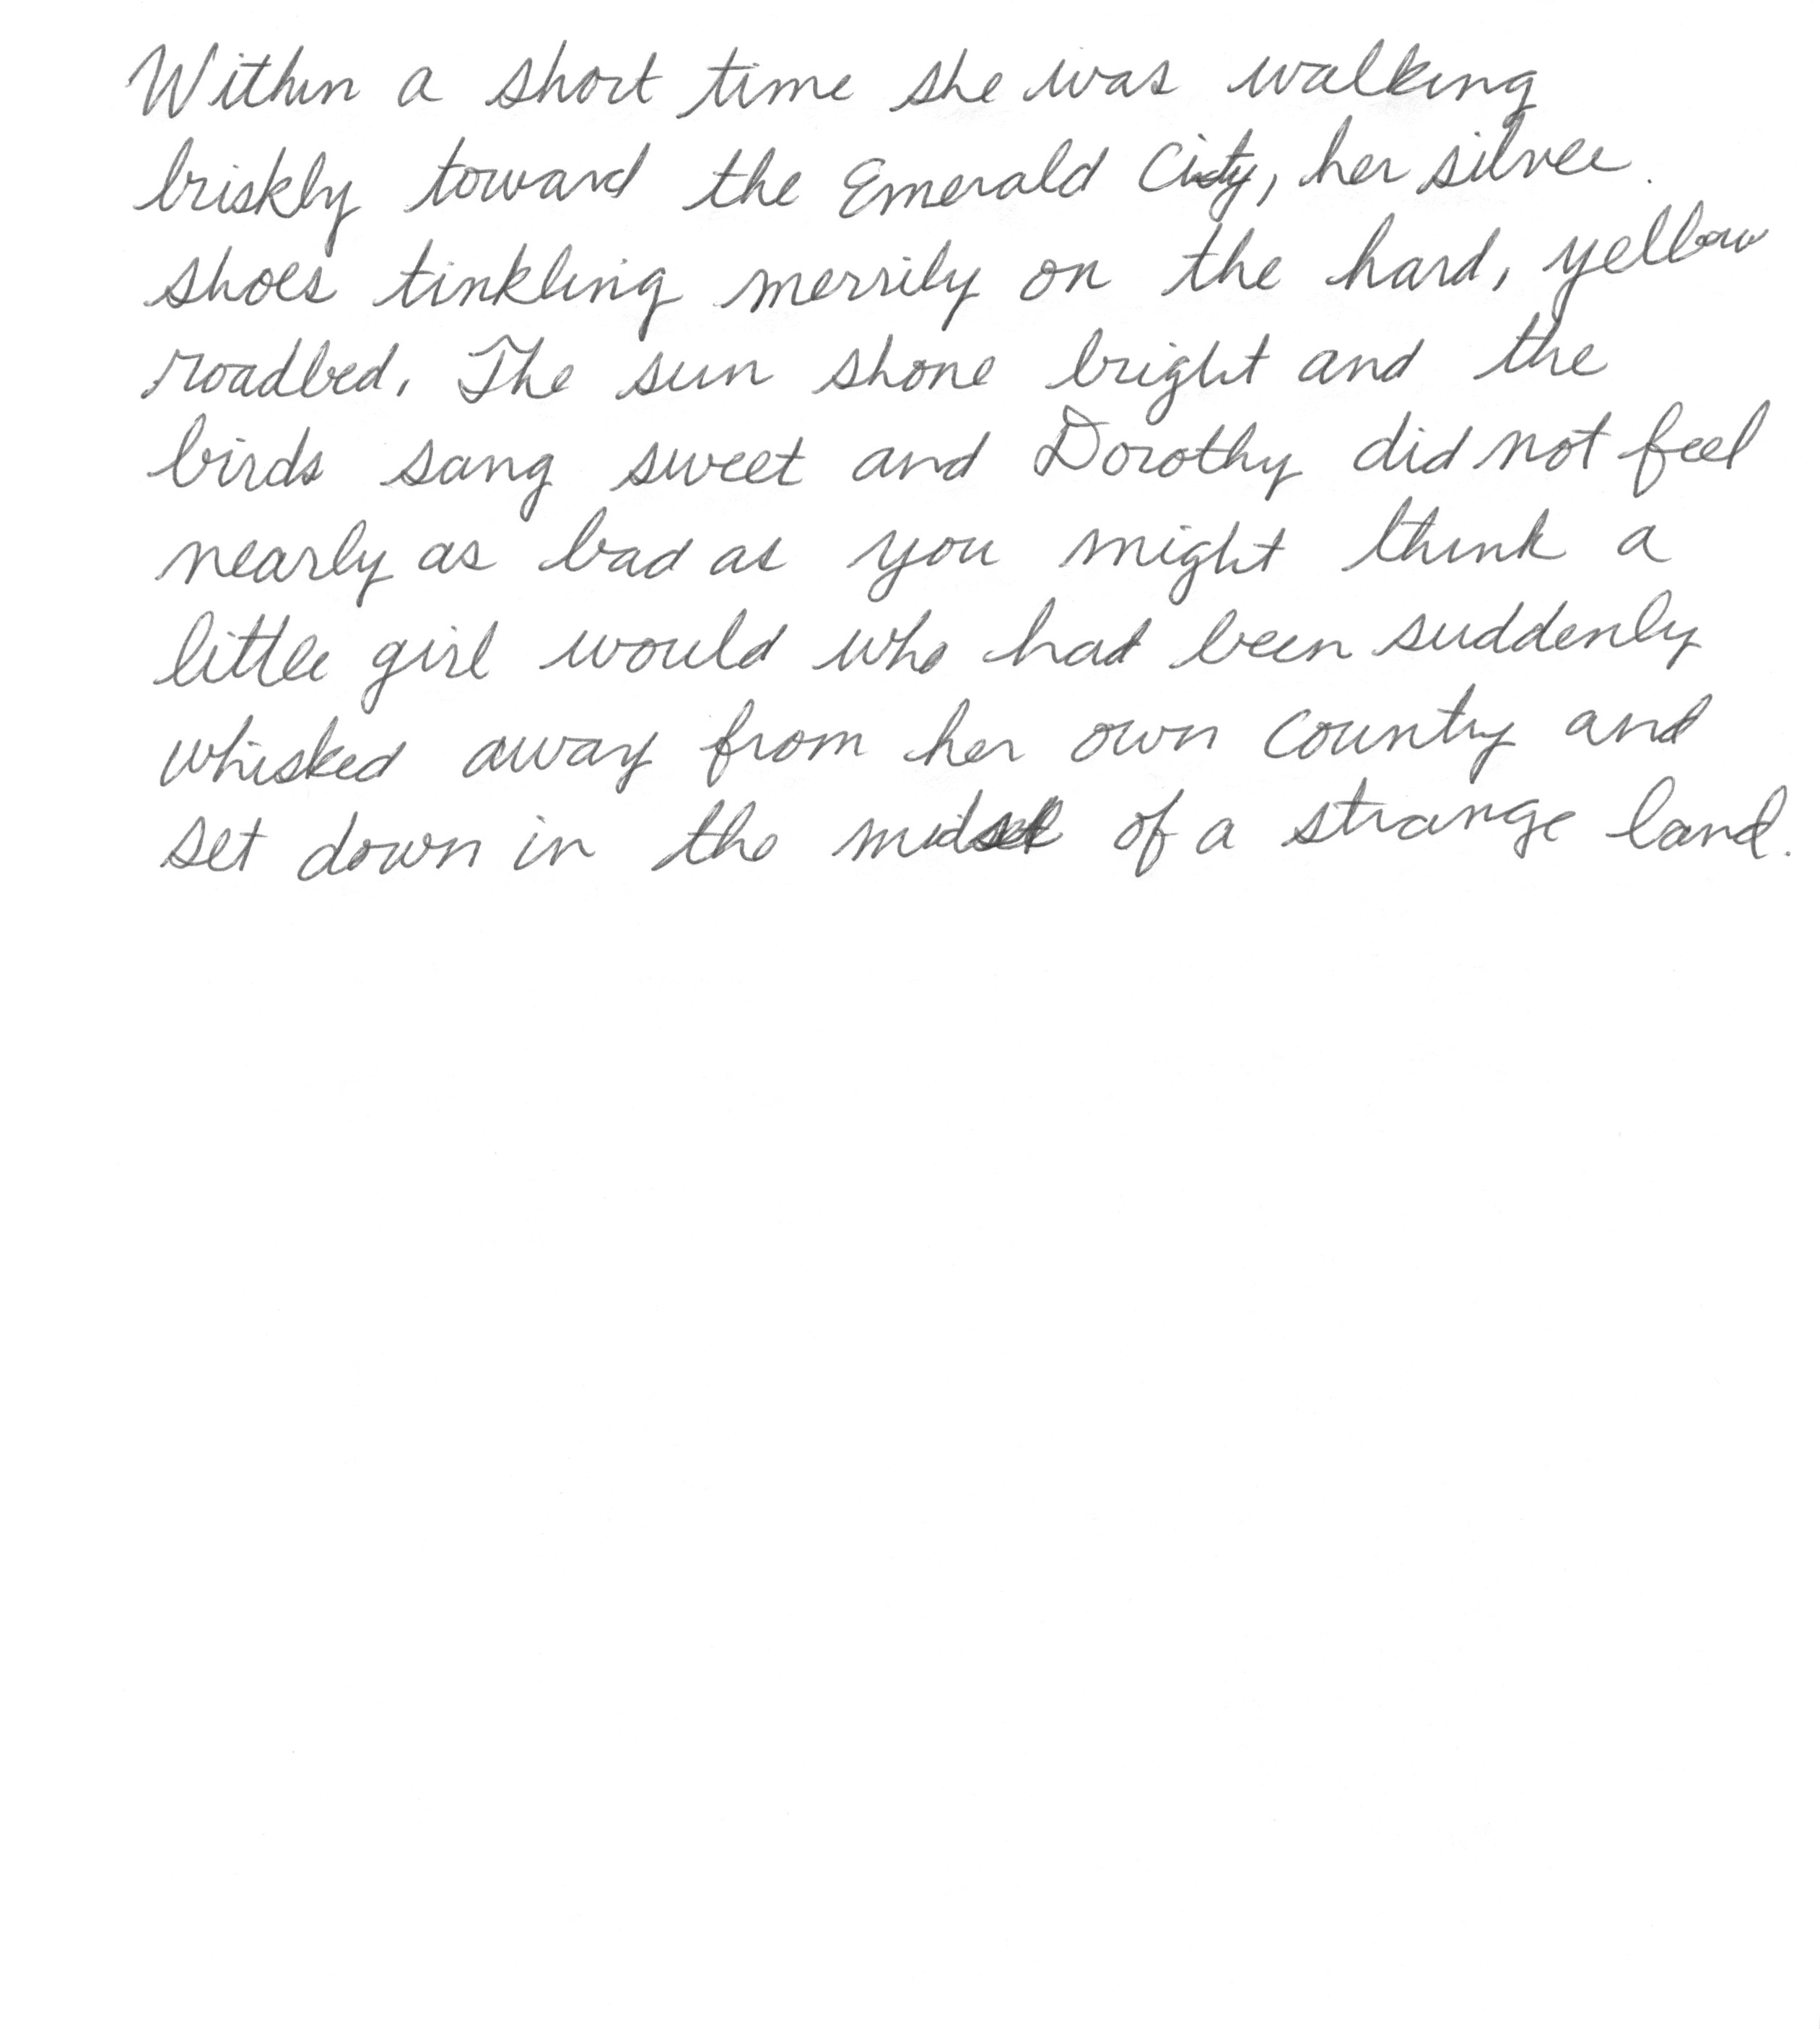 Within a short time she was walking
briskly toward the Emerald City, her silver
shoes tinkling merrily on the hard, yellow
roadbed. The sun shone bright and the
birds sang sweet and Dorothy did not feel
nearly as bad as you might think a
little girl would who had been suddenly
whisked away from her own county and
set down in the midst of a strange land.